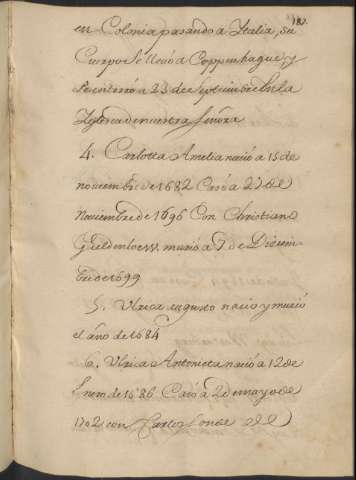 187.
en Colonia pasando a Italia, su
Cuerpo se llevó a Coppenhague, y
se enterró a 23 de septiembre en la
Iglesia de nuestra señora
4. Carlotta Amelia nació a 15 de
noviembre de 1682 Casó a 27 de
Noviembre de 1696 Con Christiano
Guldenloew murió a 7 de Diciem
bre de 1699
5. Ulrico augusto nació y murió
el año de 1684
6. Ulrica Antonieta nació a 12 de
Enero de 1686 Casó a 2 de mayo de
1702 con Carlos Conde de